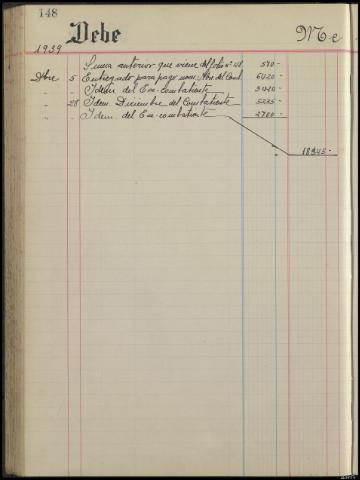 148
Debe
M e
1939
Suma anterior que viene del folio nº 148 570-
Dbre 5 Entregado para pago nom. Nbre del Comb 6420-
" " Idem del Ex-Combatiente 3420-
" 28 Idem. Diciembre del Combatiente 5235-
" " Idem. del Ex-combatiente 2700-
18345-